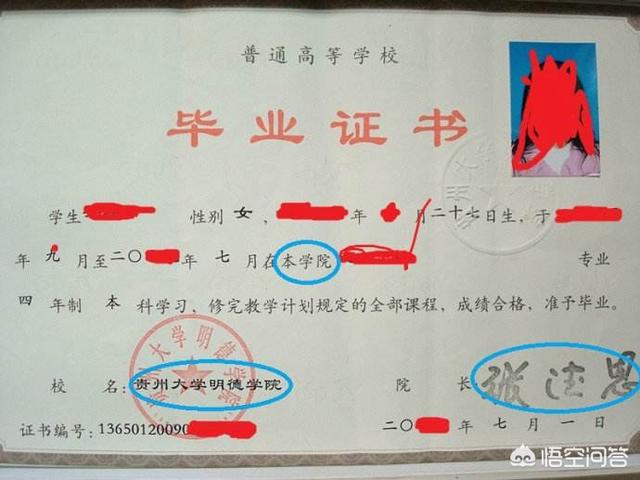 普通高等学校
毕业证书
学生 性别 女 , 年 月二十六日生,于
年 九 月至二〇 年 七 月在本学院 专业
四 年制 本 科学习,修完教学计划规定的全部课程,成绩合格,准予毕业。
贵州大学明德学院
校 名:贵州大学明德学院 院 长:
证书编号:13650120090 二〇 年 七 月 一 日
悟空问答